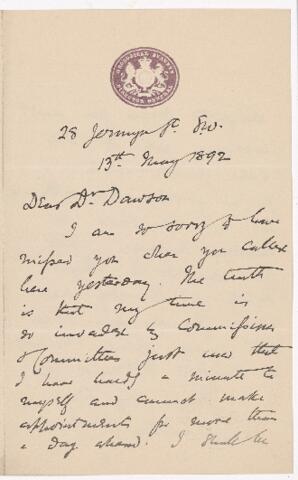 GEOLOGICAL SURVEY
DIRECTOR GENERAL
28 Jermyn St. S.W.
13th May 1892
Dear Dr Dawson
I am so sorry to have
missed you when you called
here yesterday. The truth
is that my time is
so invaded by Commissions
& Committees just now that
I have hardly a minute to
myself and cannot make
appointments for more than
a day ahead. I shall be